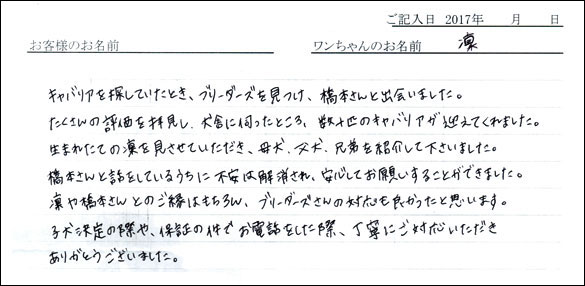 ご記入日 2017年 月 日
お客様のお名前 ワンちゃんのお名前 凛
キャバリアを探していたとき、ブリーダーズを見つけ、橋本さんと出会いました。
たくさんの評価を拝見し、犬舎に伺ったところ、数十匹のキャバリアが迎えてくれました。
生まれたての凛を見させていただき、母犬、父犬、兄弟を紹介して下さいました。
橋本さんと話をしているうちに不安は解消され、安心してお願いすることができました。
凛や橋本さんとのご縁はもちろん、ブリーダーズさんの対応も良かったと思います。
子犬決定の際や、保証の件でお電話をした際、丁寧にご対応いただき
ありがとうございました。